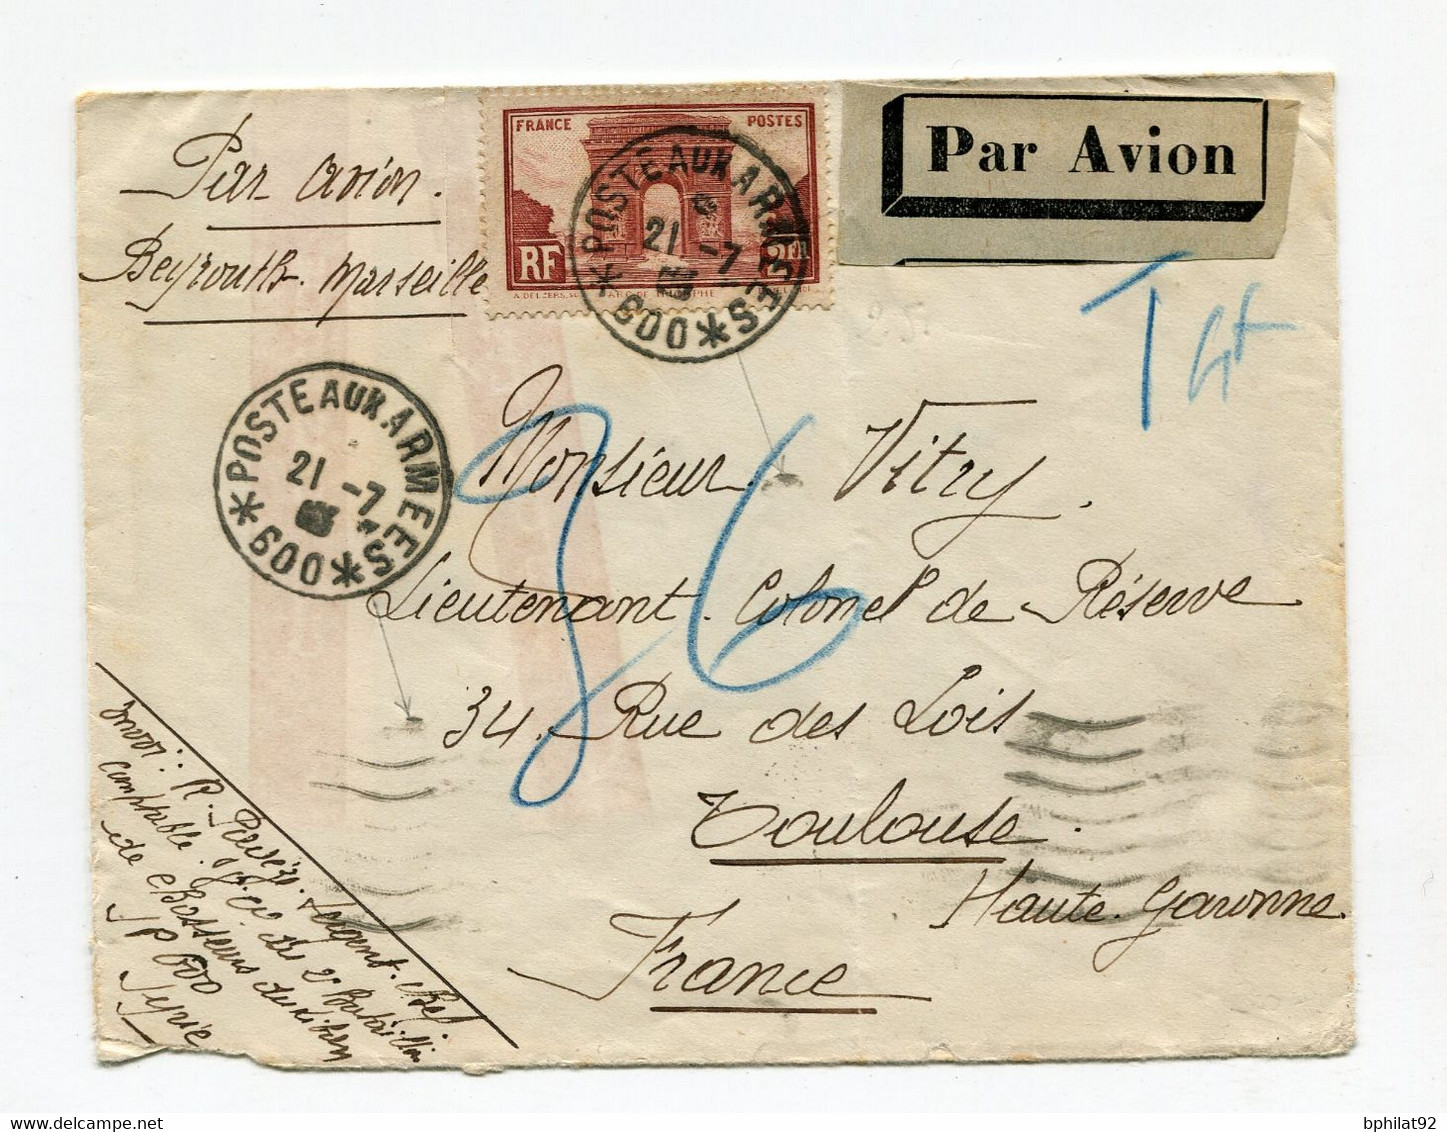 Par avion.
Beyrouth-Marseille
FRANCE POSTES
RF 2F
POSTE AUX ARMEES
21 -7
*600*
Par Avion
T
POSTE AUX ARMEES
21 -7
*600*
36
Monsieur Vitry.
Lieutenant-Colonel de Réserve
34. Rue des Lois
Toulouse.
Haute-Garonne.
France
Envoi: R. Sergent-chef
comptable. 2e Bataillon
de chasseurs du Liban
SP 600
Syrie
bphilat92